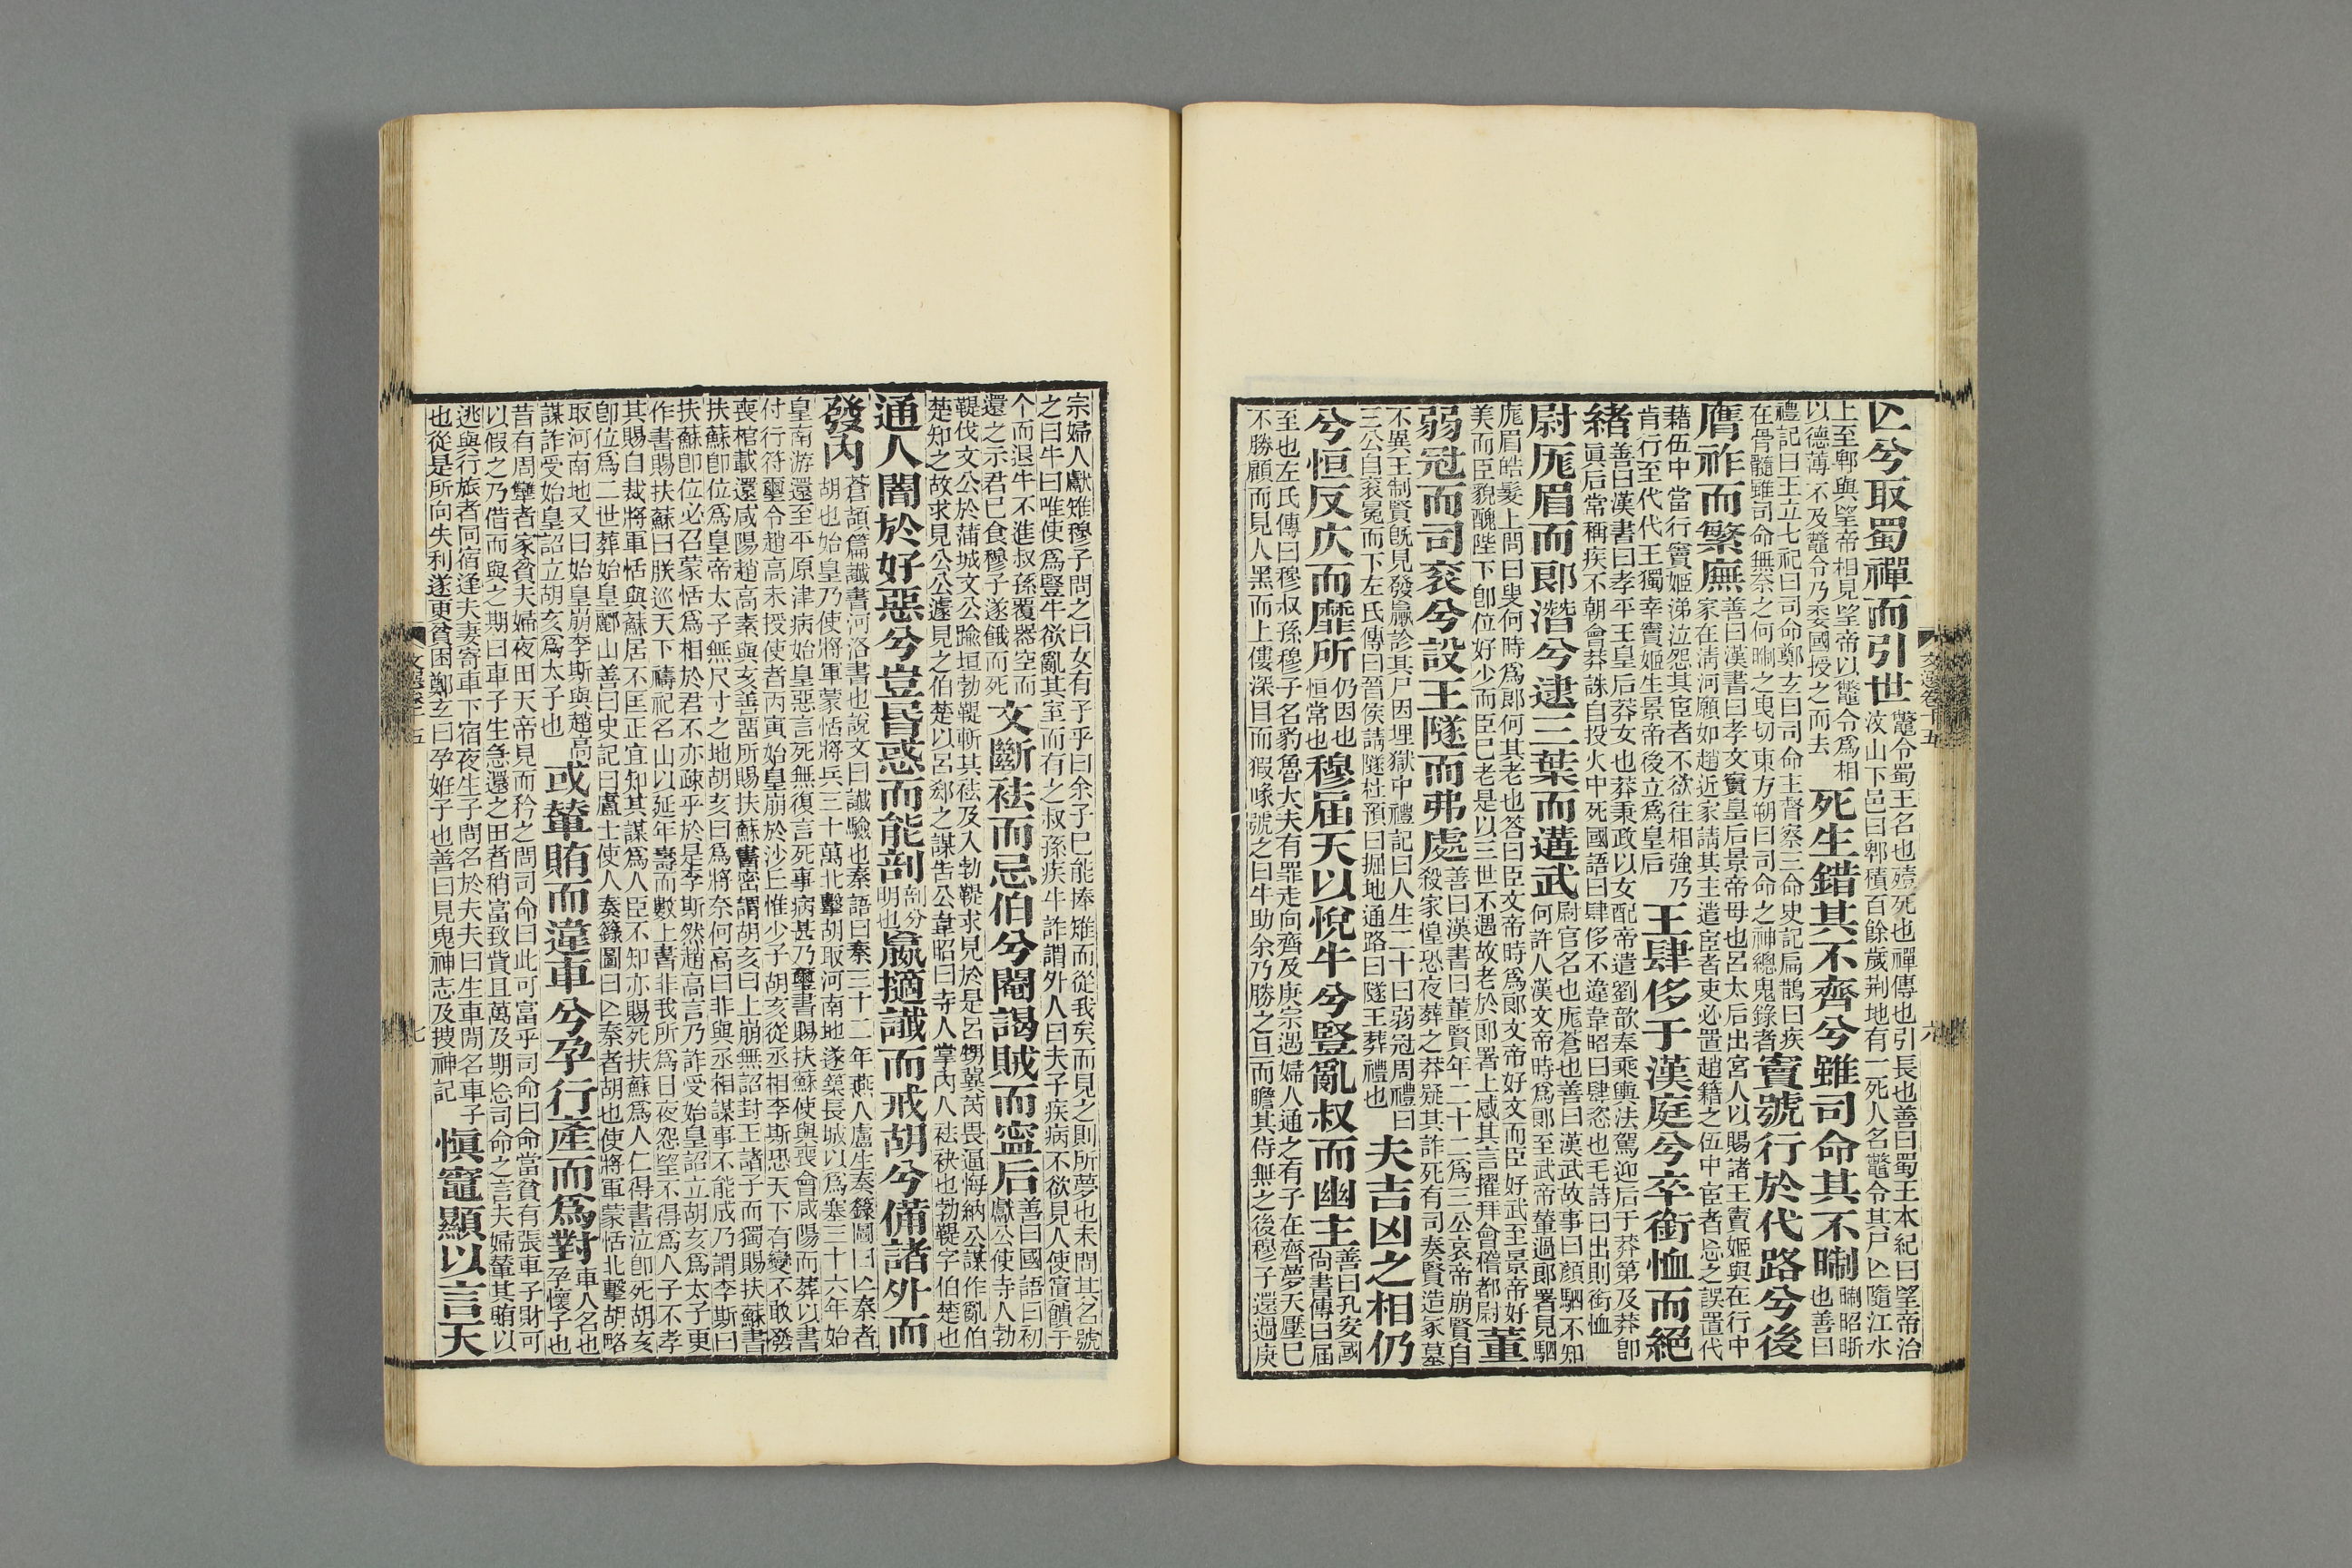 亾兮取蜀禪而引世
鼈令蜀王名也殪死也禪傳也引長也善曰蜀王本紀曰望帝治
汶山下邑曰郫積百餘歲荆地有一死人名鼈令其尸亾隨江水
上至郫與望帝相見望帝以鼈令爲相
以德薄不及鼈令乃委國授之而去
死生錯其不齊兮雖司命其不晣
晣昭晣
也善曰
禮記曰王立七祀曰司命鄭玄曰司命主督察三命史記扁鵲曰疾
在骨髓雖司命無奈之何晣之曳切東方朔曰司命之神總鬼錄者
竇號行於代路兮後
膺祚而繁廡
善曰漢書曰孝文竇皇后景帝母也呂太后出宮人以賜諸王竇姬與在行中
家在淸河願如趙近家請其主遣宦者吏必置趙籍之伍中宦者忘之誤置代
藉伍中當行竇姬涕泣怨其宦者不欲往相強乃
肯行至代代王獨幸竇姬生景帝後立爲皇后
王肆侈于漢庭兮卒銜恤而絕
緒
善曰漢書曰孝平王皇后莽女也莽秉政以女配帝遣劉歆奉乘輿法駕迎后于莽第及莽卽
眞后常稱疾不朝會莽誅自投火中死國語曰肆侈不違韋昭曰肆恣也毛詩曰出則銜恤
尉厖眉而郎潛兮逮三葉而遘武
尉官名也厖蒼也善曰漢武故事曰顏駟不知
何許人漢文帝時爲郎至武帝輦過郎署見駟
厖眉皓髮上問曰叟何時爲郎何其老也答曰臣文帝時爲郎文帝好文而臣好武至景帝好
美而臣貌醜陛下卽位好少而臣已老是以三世不遇故老於郎署上感其言擢拜會稽都尉
董
弱冠而司衮兮設王隧而弗處
善曰漢書曰董賢年二十二爲三公哀帝崩賢自
殺家惶恐夜葬之莽疑其詐死有司奏賢造冢墓
不異王制賢旣見發臝診其尸因埋獄中禮記曰人生二十曰弱冠周禮曰
三公自衮冕而下左氏傳曰晉侯請隧杜預曰掘地通路曰隧王葬禮也
夫吉凶之相仍
兮恒反仄而靡所
仍因也
恒常也
穆屆天以悅牛兮豎亂叔而幽主
善曰孔安國
尙書傳曰屆
至也左氏傳曰穆叔孫穆子名豹魯大夫有罪走向齊及庚宗遇婦人通之有子在齊夢天壓已
不勝顧而見人黑而上僂深目而猳喙號之曰牛助余乃勝之旦而瞻其侍無之後穆子還過庚
文選卷十五
六
宗婦人獻雉穆子問之曰女有子乎曰余子已能捧雉而從我矣而見之則所夢也未問其名號
之曰牛曰唯使爲豎牛欲亂其室而有之叔孫疾牛詐謂外人曰夫子疾病不欲見人使寘饋于
个而退牛不進叔孫覆器空而
還之示君已食穆子遂餓而死
文斷袪而忌伯兮閹謁賊而寧后
善曰國語曰初
獻公使寺人勃
鞮伐文公於蒲城文公踰垣勃鞮斬其袪及入勃鞮求見於是呂甥冀芮畏逼悔納公謀作亂伯
楚知之故求見公公遽見之伯楚以呂郄之謀告公韋昭曰寺人掌內人袪袂也勃鞮字伯楚也
通人闇於好惡兮豈昏惑而能剖
剖分
明也
嬴擿讖而戒胡兮備諸外而
發內
蒼頡篇讖書河洛書也說文曰讖驗也秦語曰秦三十二年燕人盧生奏籙圖曰亾秦者
胡也始皇乃使將軍蒙恬將兵三十萬北擊胡取河南地遂築長城以爲塞三十六年始
皇南游還至平原津病始皇惡言死無復言死事病甚乃璽書賜扶蘇使與喪會咸陽而葬以書
付行符璽令趙高未授使者丙寅始皇崩於沙丘惟少子胡亥從丞相李斯恐天下有變不敢發
喪棺載還咸陽趙高素與亥善留所賜扶蘇書密謂胡亥曰上崩無詔封王諸子而獨賜扶蘇書
扶蘇卽位爲皇帝太子無尺寸之地胡亥曰爲將奈何高曰非與丞相謀事不能成乃謂李斯曰
扶蘇卽位必召蒙恬爲相於君不亦疎乎於是李斯然趙高言乃詐受始皇詔立胡亥爲太子更
作書賜扶蘇曰朕巡天下禱祀名山以延年壽而數上書非我所爲日夜怨望不得爲人子不孝
其賜自裁將軍恬與蘇居不匡正宜知其謀爲人臣不知亦賜死扶蘇爲人仁得書泣卽死胡亥
卽位爲二世葬始皇酈山善曰史記曰盧士使人奏籙圖曰亾秦者胡也使將軍蒙恬北擊胡略
取河南地又曰始皇崩李斯與趙高
謀詐受始皇詔立胡亥爲太子也
或輦賄而違車兮孕行產而爲對
車人名也
孕懷子也
昔有周犨者家貧夫婦夜田天帝見而矜之問司命曰此可富乎司命曰命當貧有張車子財可
以假之乃借而與之期曰車子生急還之田者稍富致貲且萬及期忘司命之言夫婦輦其賄以
逃與行旅者同宿逢夫妻寄車下宿夜生子問名於夫夫曰生車閒名車子
也從是所向失利遂更貧困鄭玄曰孕妊子也善曰見鬼神志及搜神記
愼竈顯以言天
文選卷十五
七